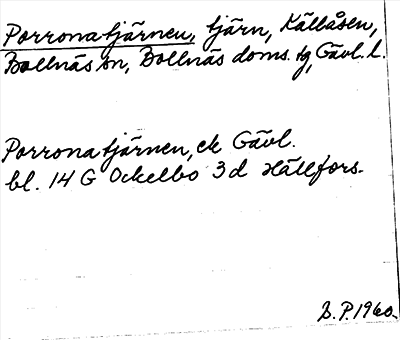 Porronatjärnen, tjärn, Källåsen,
Bollnäs sn, Bollnäs doms. tg, Gävl. l.
Porronatjärnen, ek Gävl.
bl. 14 G Ockelbo 3d Hällfors.
B.P. 1960.